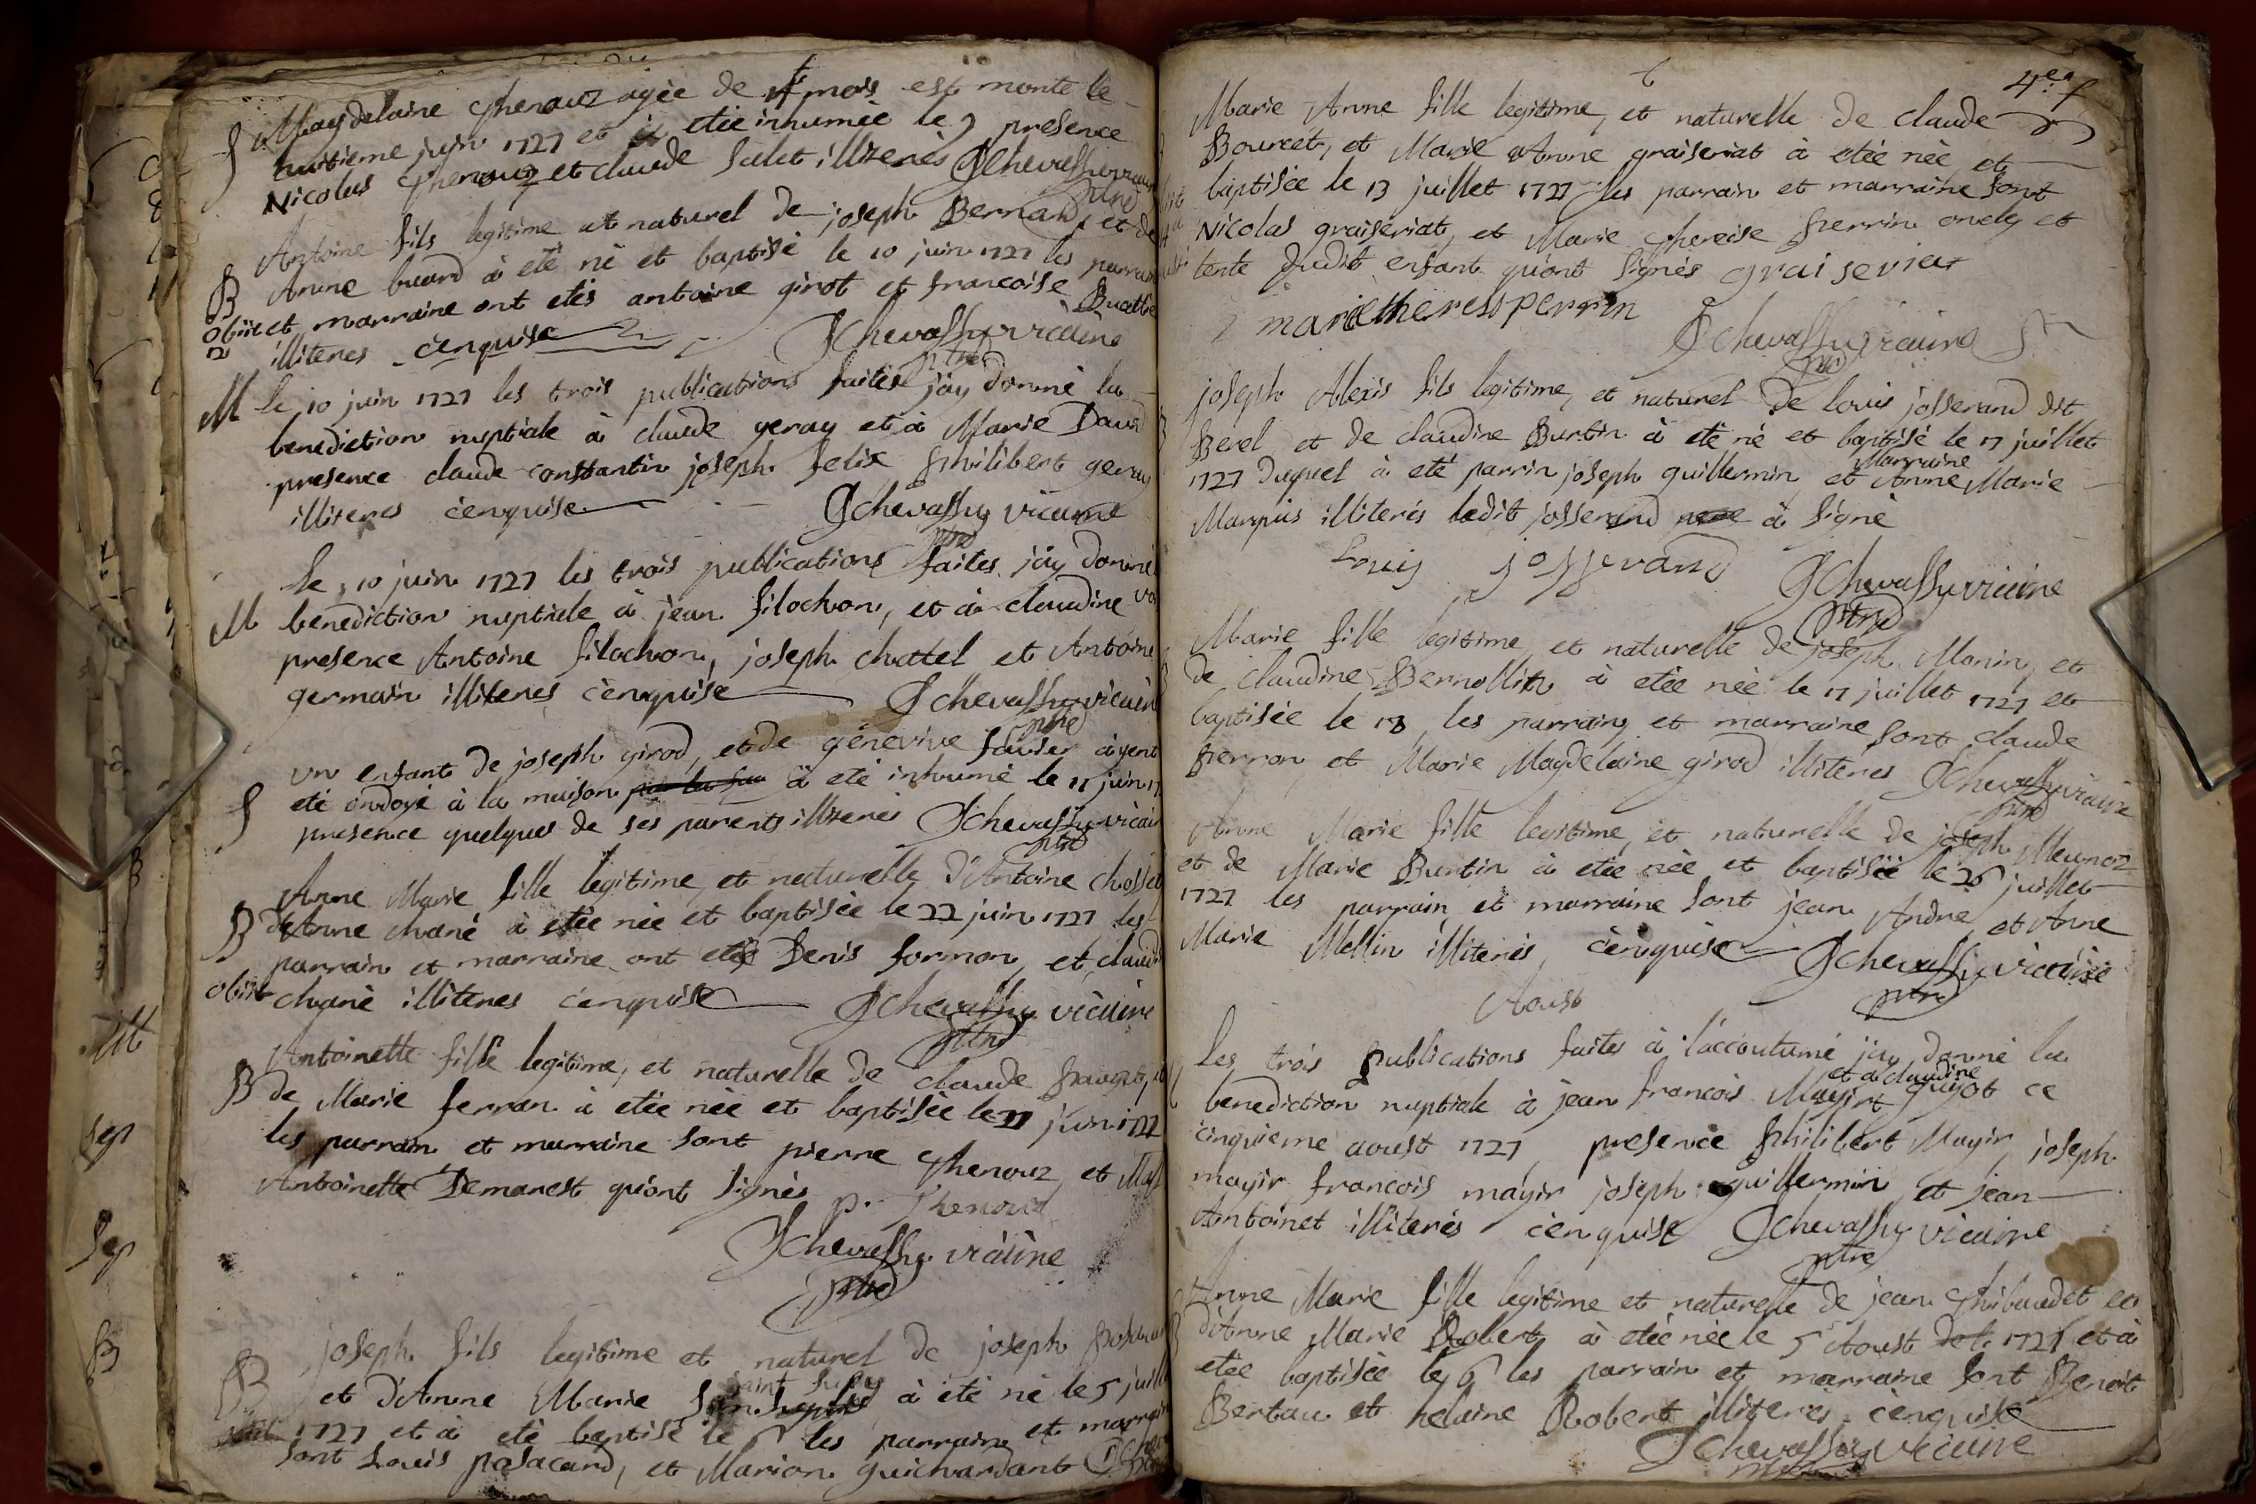 S Magdelaine Thenouz agèe de 4 mois est morte le
huitieme juin 1727 et à etée inhumèe le 9 presence
Nicolas Thenouz et claude Salet illiterès JChevassu vicaire
ptre
Antoine fils legitime et naturel de joseph Bernard, et de
B Anne buard à eté né et baptisé le 10 juin 1727 les parrain
obiit et marraine ont etés antoine girot et francoise
illiteres ènquise JChevassu vicaire
ptre
M le 10 juin 1727 les trois publications faites j'ay donné la
benediction nuptiale à claude geray et à Marie David
presence claude constantin joseph felix philibert geray
illiteres ènquise JChevassu vicaire
ptre
Le 10 juin 1727 les trois publications faites j'ay donné
M benediction nuptiale à jean filochon, et à claudine
presence Antoine filochon, joseph chatel et Antoine
germain illiteres ènquise JChevassu vicaire
ptre
un enfant de joseph girod, et de génevive favier ayent
S eté ondoyé à la maison à eté inhumé le 11 juin
presence quelques de ses parents illiterés JChevassu vicaire
ptre
Anne Marie fille legitime, et naturelle d'Antoine chossat
B d'Anne chané à etée née et baptisèe le 22 juin 1727 les
parrain et marraine ont etés Denis formon, et claudi
obiit chanè illiteres ènquise JChevassu vicaire
ptre
Antoinette fille legitime, et naturelle de claude
B de Marie ferran à etée née et baptisèe le 27 juin 1727
les parrain et marraine sont pierre Thenouz et
Antoinette Demarest qu'ont signés
p. Thenoud
JChevassu vicaire
ptre
joseph fils legitime et naturel de joseph
B et d'Anne Marie saint à eté né le 5 juill
1727 et à eté baptisé le 6 les parrain et marraine
sont Louis pasacard, et Marion guichardant
4e f
Marie Anne fille legitime, et naturelle de claude
Bourcet, et Marie Anne graiseriat à etée née et
baptisèe le 13 juillet 1727 les parrain et marraine sont
Nicolas graiseriat, et Marie Thereise perrin oncle et
tente dudit enfant qu'ont signés graiseriat
marie theress perrin
JChevassu vicaire
ptre
joseph Alexis fils legitime, et naturel de louis josserand dit
Berel et de claudine Burtin à eté né et baptisé le 17 juillet
Marraine
1727 duquel à eté parrin joseph guillermin, et Anne Marie
Marquis illiterés ledit josserand à signé
Louis josserand JChevassu vicaire
ptre
Marie fille legitime, et naturelle de joseph Monin, et
de claudine Bernollin à etée née le 17 juillet 1727 et
baptisèe le 18, les parrain, et marraine sont claude
perron et Marie Magdelaine girod illiteres JChevassu vicaire
ptre
Anne Marie fille legitime, et naturelle de joseph Meunoz
et de Marie Burtin à etée née et baptisèe le 26 juillet
1727 les parrain, et marraine sont jean André, et Anne
Marie Mellin illiterés, ènquise JChevassu vicaire
ptre
Aoust
Les trois publications faites à l'accoutumé j'ay donné la
et à claudine
benediction nuptiale à jean francois Mayir guyot ce
cinquieme aoust 1727 presence philibert Mayir joseph
mayir francois mayir joseph guillermin et jean
Antoinet illiterés ènquise JChevassu vicaire
ptre
Anne Marie fille legitime et naturelle de jean Thibaudet et
d'Anne Marie Robert à etée née le 5 Aoust 1727 et à
etée baptisèe le 6 les parrain et marraine sont Benoit
Bertau et helaine Robert illiterés ènquise
JChevassu vicaire